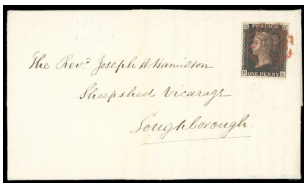 POSTAGE
ONE PENNY
The Revd Joseph H. Hamilton
Sheepshed Vicarage
Loughborough.